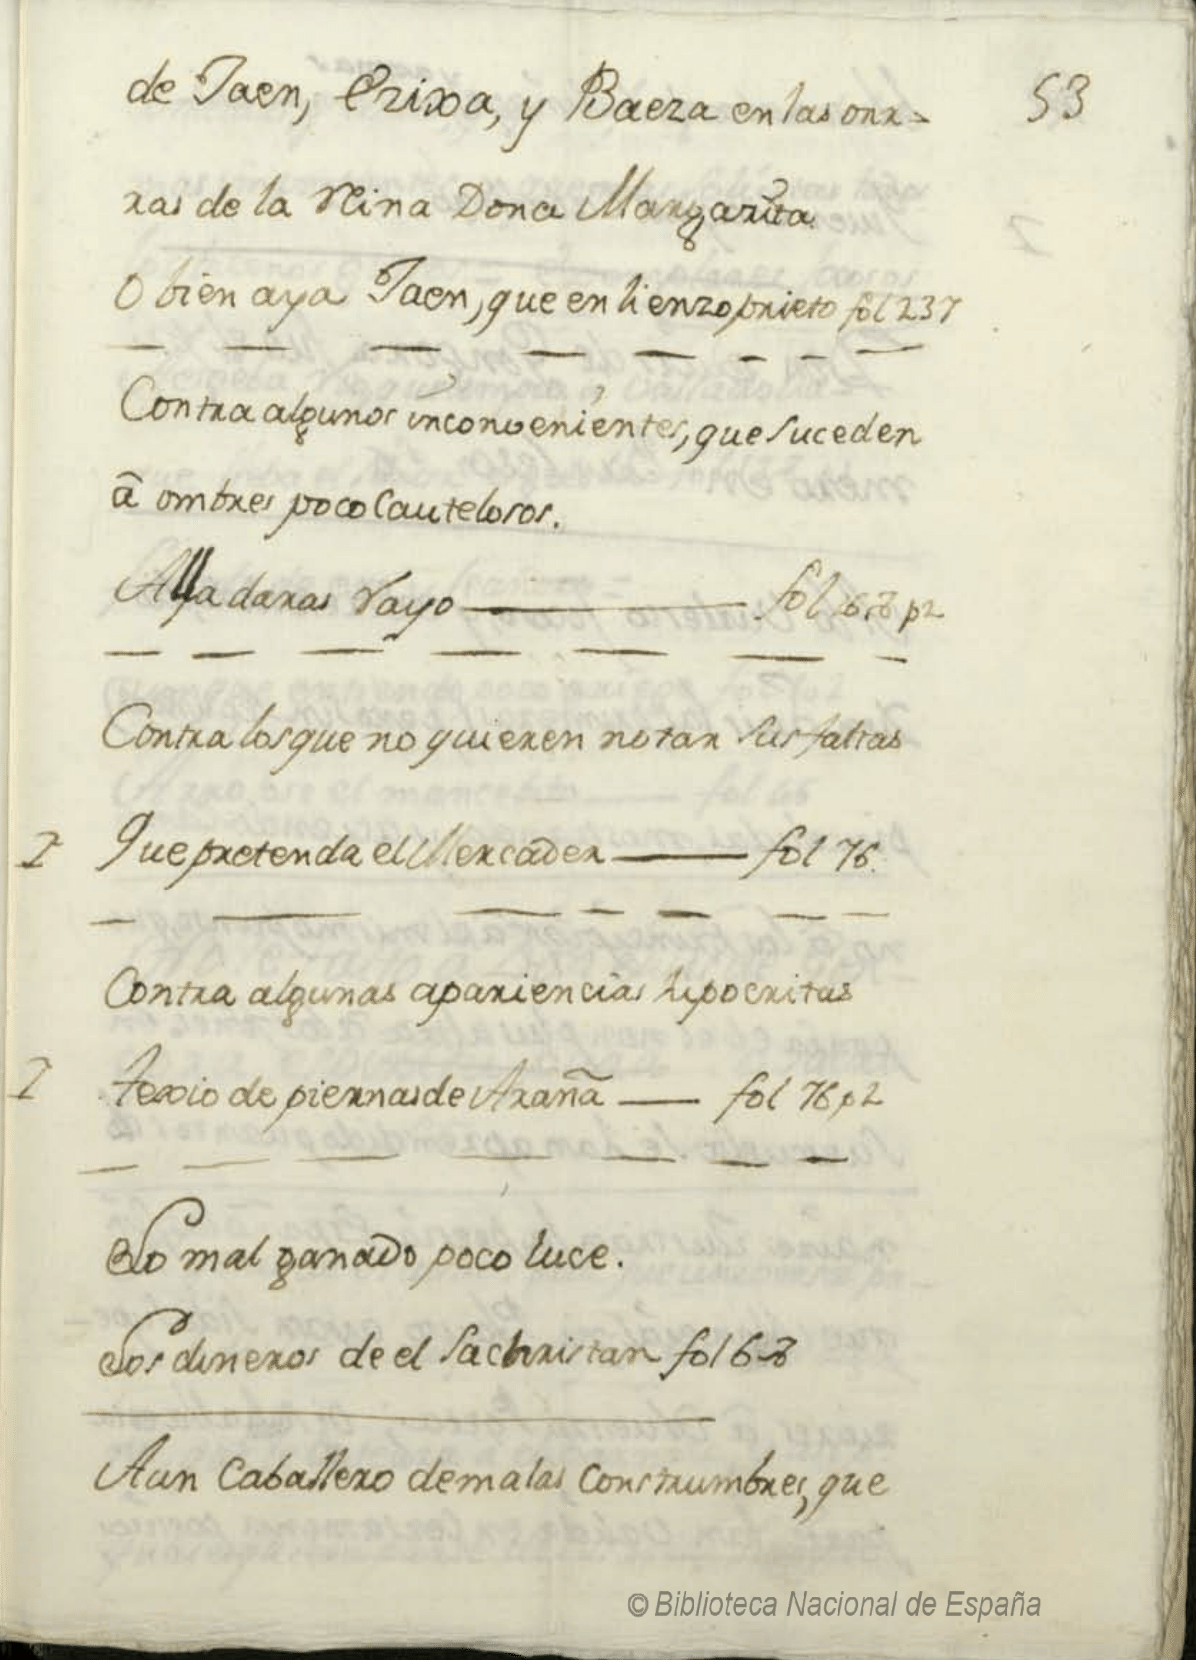 53
de Jaen, Ecixa, y Baeza en las onr-
ras de la Reina Dona Margarita.
O bien aya Jaen, que en lienzo prieto fol 237
Contra algunos inconvenientes, que suceden
â ombres poco Cautelosos.
Alla daras rayo fol 68 p2
Contra los que no quieren notar sus faltas
I Que pretenda el Mercader fol 76.
Contra algunas apariencias hipocritas
I texio de piernas de Araña fol 76 p2
Lo mal ganado poco luce.
Los dineros de el Sachristan fol 68
A un Caballero de malas Construmbres, que
© Biblioteca Nacional de España